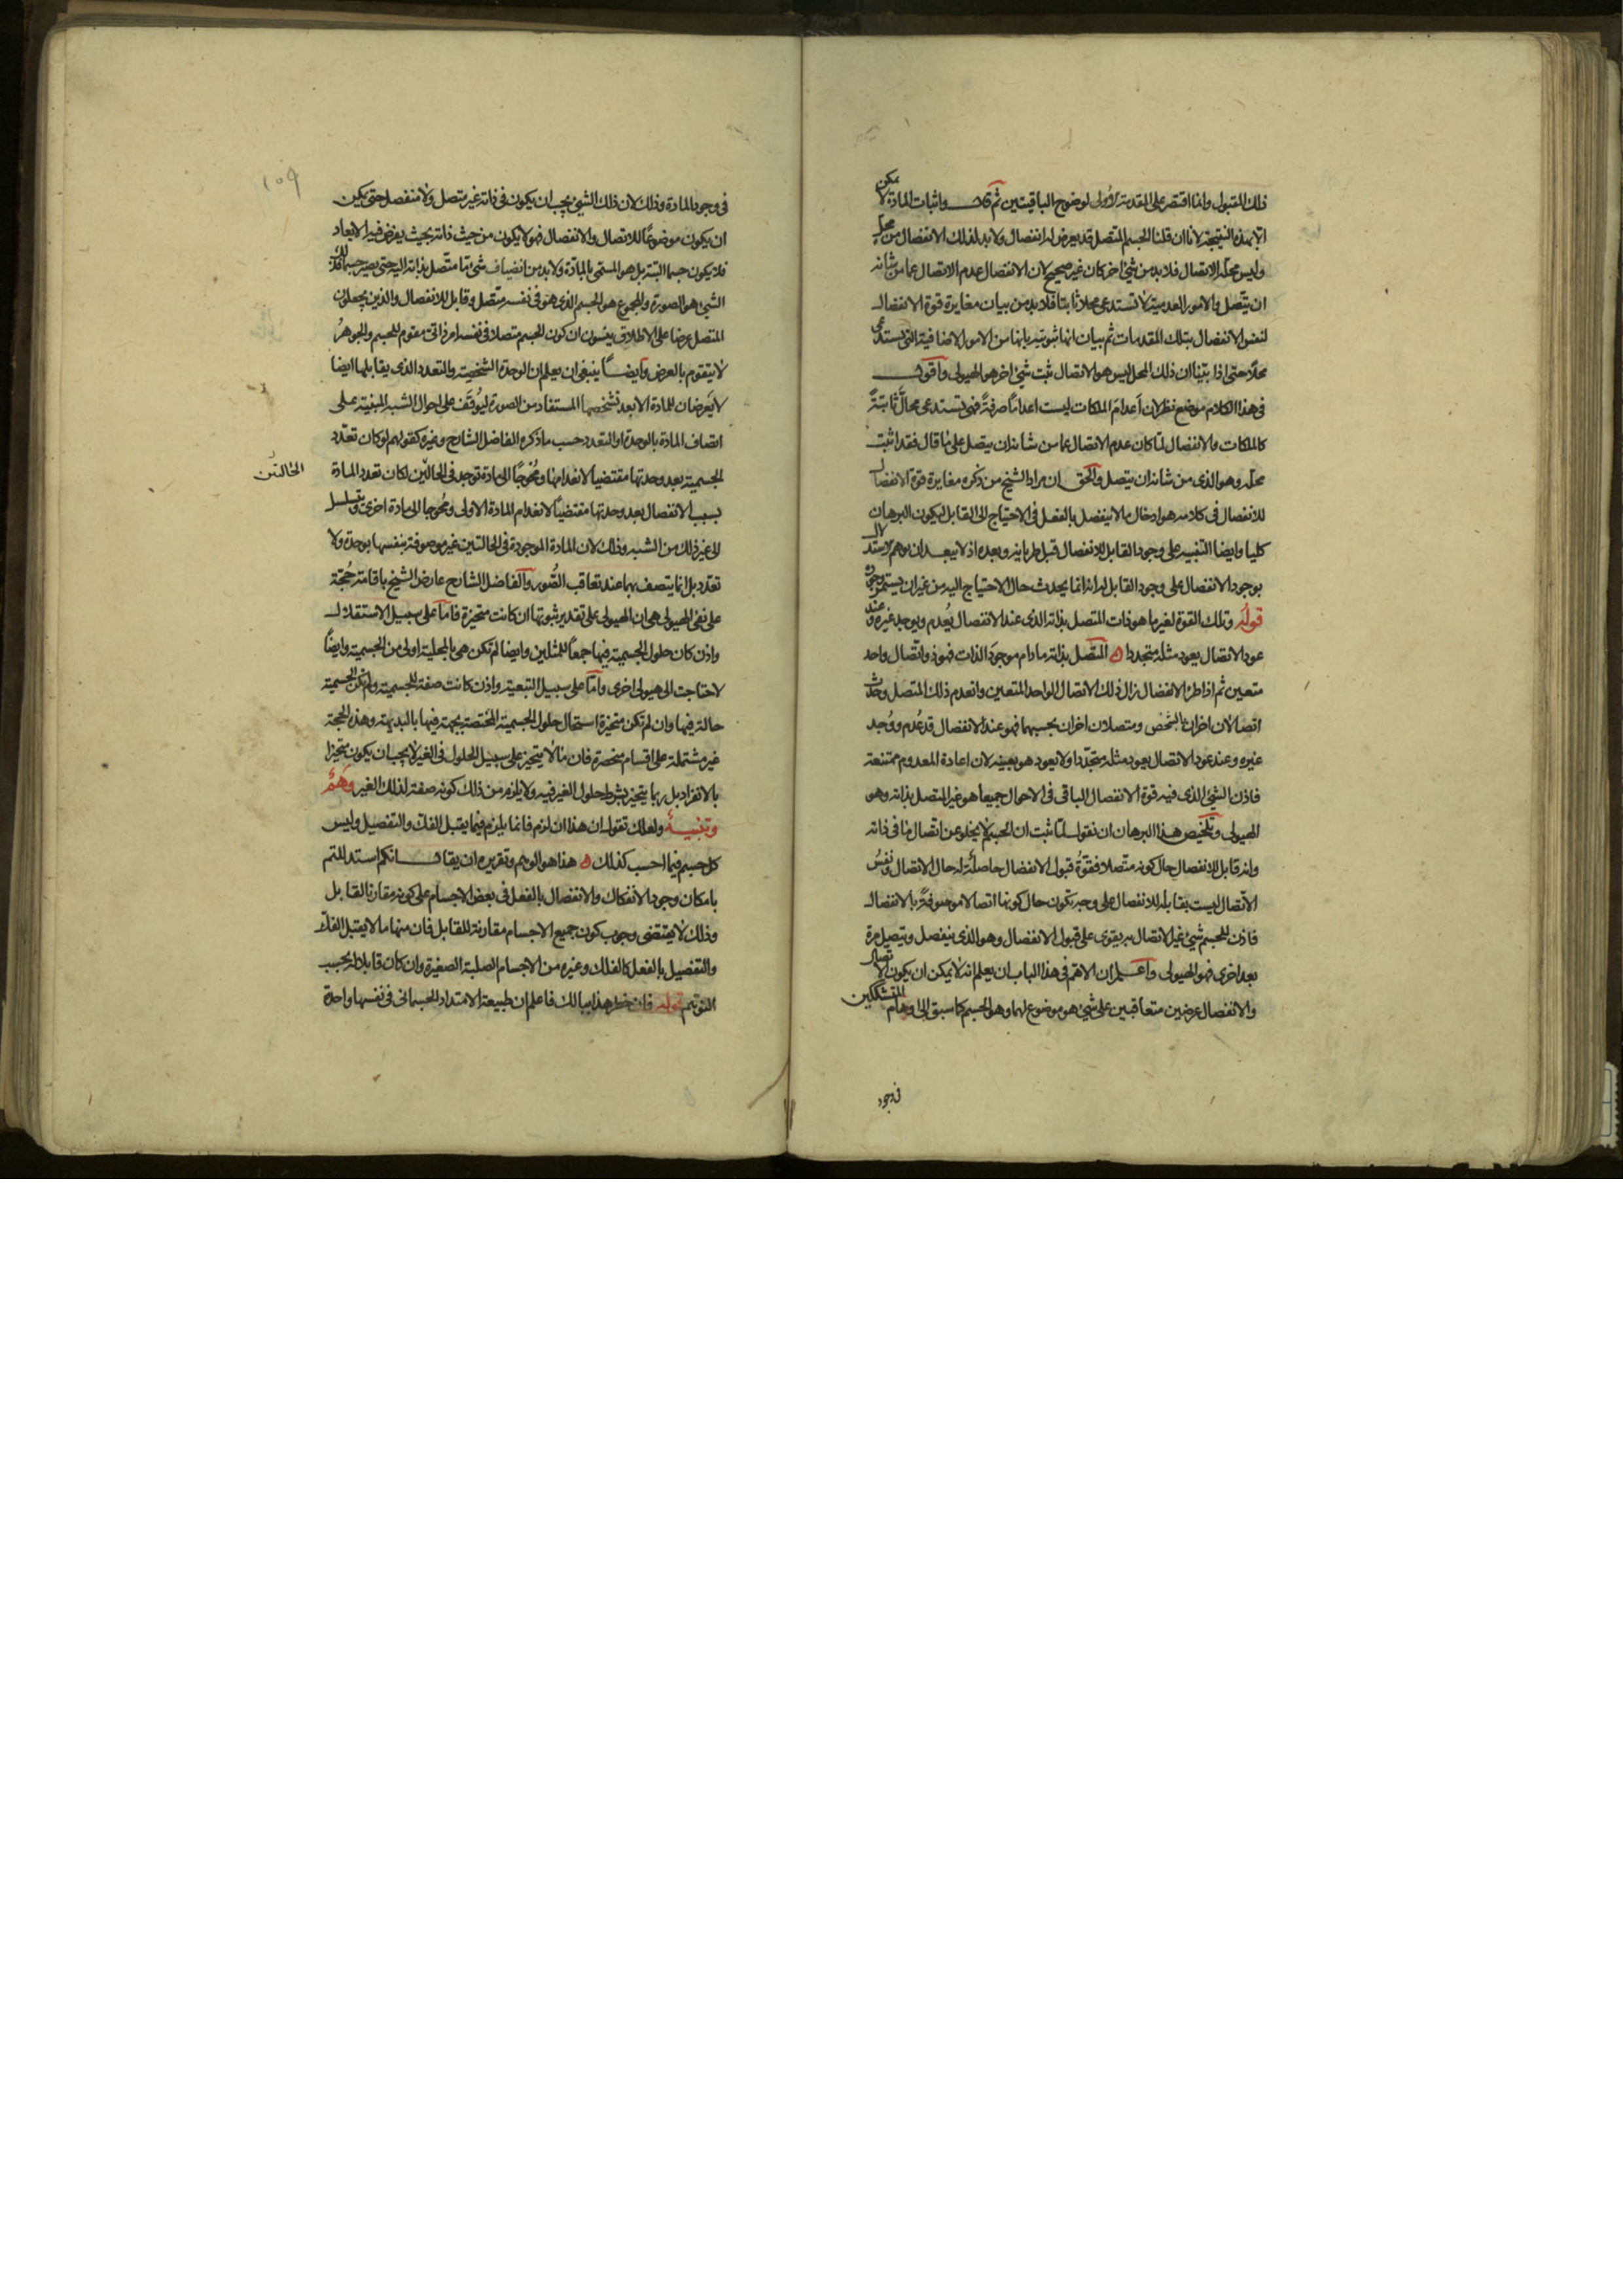 ذلك المقبول وانما اقتصر على المقدمة الاولى لوضوح الباقيتين ثم قال واثبات المادة لا يمكن
الا بهذه النتيجة لانا ان قلنا الجسم المتصل قد يعرض له انفصال ولا بد لذلك الانفصال من محل
وليس محله الاتصال فلا بد من شئ اخر كان غير صحيح لان الانفصال عدم الاتصال عما من شانه
ان يتصل والامور العدمية لا تستدعى محلا ثابتا فلا بد من بيان مغايرة قوة الانفصال
لنفس الانفصال بتلك المقدمات ثم بيان انها ثبوتية بانها من الامور الاضافية التى تستدعى
محلا حتى اذا بينا ان ذلك المحل ليس هو الاتصال ثبت شئ اخر هو الهيولى واقول
فى هذا الكلام موضع نظر لان اعدام الملكات ليست اعداما صرفة فهى تستدعى محالا ثابتة
كالملكات والانفصال لما كان عدم الاتصال عما من شانه ان يتصل على ما قال فقد اثبت
محله وهو الذى من شانه ان يتصل والحق ان مراد الشيخ من ذكره مغايرة قوة الانفصال
للانفصال فى كلامه هو ادخال ما لا ينفصل بالفعل فى الاحتياج الى القابل ليكون البرهان
كليا وايضا التنبيه على وجود القابل للانفصال قبل طريانه وبعده اذ لا يبعد ان يوهم الاستدلال
بوجود الانفصال على وجود القابل له انه انما يحدث حال الاحتياج اليه من غير ان يستمر وجوده
قوله وتلك القوة لغير ما هو ذات المتصل بذاته الذى عند الانفصال يعدم ويوجد غيره وعند
عود الاتصال يعود مثله متجددا المتصل بذاته ما دام موجود الذات فهو ذو اتصال واحد
متعين ثم اذا طرأ الانفصال زال ذلك الاتصال الواحد المتعين وانعدم ذلك المتصل وحدث
اتصالان اخران بالشخص ومتصلان اخران بحسبهما فهو عند الانفصال قد عدم ووجد
غيره وعند عود الاتصال يعود مثله متجددا ولا يعود هو بعينه لان اعادة المعدوم ممتنعة
فاذن الشئ الذى فيه قوة الانفصال الباقى فى الاحوال جميعا هو غير المتصل بذاته وهو
الهيولى وتلخيص هذا البرهان ان نقول لما ثبت ان الجسم لا يخلو عن اتصال ما فى ذاته
وانه قابل للانفصال حال كونه متصلا فقوة قبول الانفصال حاصلة له حال الاتصال ونفس
الاتصال ليست بقابلة للانفصال على وجه تكون حال كونها اتصالا موصوفة بالانفصال
فاذن للجسم شئ غير الاتصال به يقوى على قبول الانفصال وهو الذى ينفصل ويتصل مرة
بعد اخرى فهو الهيولى واعلم ان الاهم فى هذا الباب ان يعلم انه لا يمكن ان يكون الاتصال
والانفصال عرضين متعاقبين على شئ هو موضوع لهما وهو الجسم كما سبق الى اوهام المتشككين
فى وجود
فى وجود المادة وذلك لان ذلك الشئ يجب ان يكون فى ذاته غير متصل ولا منفصل حتى يمكن
ان يكون موضوعا للاتصال والانفصال فهو لا يكون من حيث ذاته بحيث يفرض فيه الابعاد
فلا يكون جسما البتة بل هو المسمى بالمادة ولا بد من انضياف شئ ما متصل بذاته اليه حتى يصير جسما فذلك
الشئ هو الصورة والمجموع هو الجسم الذى هو فى نفسه متصل وقابل للانفصال والذين يجعلون
المتصل عرضا على الاطلاق ينسون ان كون الجسم متصلا فى نفسه امر ذاتى مقوم للجسم والجوهر
لا يتقوم بالعرض وايضا ينبغى ان يعلم ان الوحدة الشخصية والتعدد الذى يقابلها ايضا
لا يعرضان للمادة الا بعد تشخصها المستفاد من الصورة ليوقف على احوال الشبه المبنية على
اتصاف المادة بالوحدة او التعدد حسب ما ذكره الفاضل الشارح وغيره كقولهم لو كان تعدد
الجسمية بعد وحدتها مقتضيا لانعدامها ومحوجا الى مادة توجد فى الحالين لكان تعدد المادة
الحالتين
بسبب الانفصال بعد وحدتها مقتضيا لانعدام المادة الاولى ومحوجا الى مادة اخرى ويتسلسل
الى غير ذلك من الشبه وذلك لان المادة الموجودة فى الحالتين غير موصوفة بنفسها بوحدة ولا
تعدد بل انما يتصف بهما عند تعاقب الصور والفاضل الشارح عارض الشيخ باقامة حجة
على نفى الهيولى هى ان الهيولى على تقدير ثبوتها ان كانت متحيزة فاما على سبيل الاستقلال
واذن كان حلول الجسمية فيها جمعا للمثلين وايضا لم تكن هى بالمحلية اولى من الجسمية وايضا
لاحتاجت الى هيولى اخرى واما على سبيل التبعية واذن كانت صفة للجسمية ولم تكن الجسمية
حالة فيها وان لم تكن متحيزة استحال حلول الجسمية المختصة بجهة فيها بالبديهة وهذه الحجة
غير مشتملة على اقسام منحصرة فان ما لا يتحيز على سبيل الحلول فى الغير لا يجب ان يكون متحيزا
بالانفراد بل ربما يتحيز بشرط حلول الغير فيه ولا يلزم من ذلك كونه صفة لذلك الغير وهم
وتنبيه ولعلك تقول ان هذا ان لزم فانما يلزم فيما يقبل الفك والتفصيل وليس
كل جسم فيما احسب كذلك هذا هو الوهم وتقريره ان يقال انكم استدللتم
بامكان وجود الانفكاك والانفصال بالفعل فى بعض الاجسام على كونه مقارنا لقابل
وذلك لا يقتضى وجوب كون جميع الاجسام مقارنة للقابل فان منها ما لا يقبل الفك
والتفصيل بالفعل كالفلك وغيره من الاجسام الصلبة الصغيرة وان كان قابلا له بحسب
التوهم قوله فان خطر هذا ببالك فاعلم ان طبيعة الامتداد الجسمانى فى نفسها واحدة